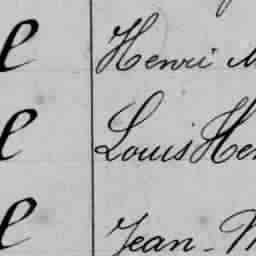 e Henri M
e Louis Hen
e Jean-M